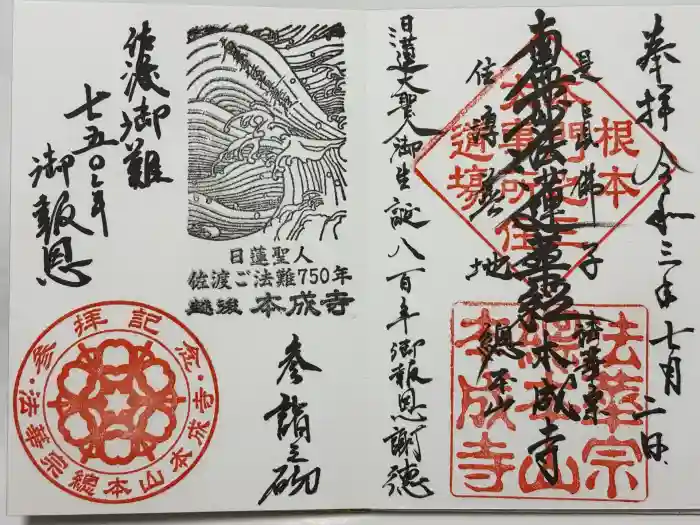 奉拝 令和三年七月二日
根本
南無妙法蓮華経
是真佛子
住諄善地
法華宗
總本山
本成寺
法華宗
總本山
本成寺
日蓮大聖人御生誕八百年御報恩謝徳
南無妙法蓮華経
日蓮聖人
佐渡ご法難750年
越後 本成寺
佐渡御難
七五〇年
御報恩
参詣之砌
参拝記念・法華宗總本山本成寺・